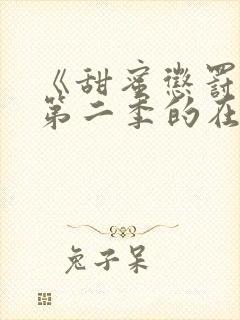 《甜蜜惩罚
第二季的在
兔子呆